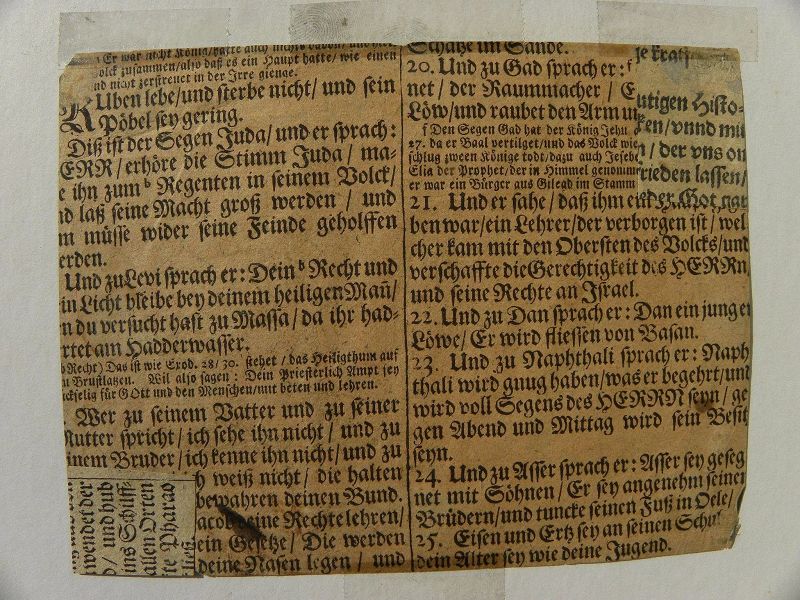 Er war nicht König/hatte auch nichts davon/
olck zusammen/also daß es ein Haupt hatte/wie einen
nd nicht zerstreuet in der Irre gienge.
RUben lebe/und sterbe nicht/und sein
Pöbel sey gering.
Diß ist der Segen Juda/und er sprach:
ERR/erhöre die Stimm Juda/ma-
e ihn zum b Regenten in seinem Volck/
nd laß seine Macht groß werden/und
m müsse wider seine Feinde geholffen
erden.
Und zu Levi sprach er: Dein b Recht und
in Licht bleibe bey deinem heiligen Mañ/
n du versucht hast zu Massa/da ihr had-
rtet am Hadderwasser.
b Recht) Das ist wie Exod. 28/30. stehet/das Heiligthum auf
n Brustlatzen. Wil also sagen: Dein Priesterlich Ampt sey
ückselig für GOtt und den Menschen/mit beten und lehren.
Wer zu seinem Vatter und zu seiner
Mutter spricht/ich sehe ihn nicht/und zu
inem Bruder/ich kenne ihn nicht/und zu
h weiß nicht/die halten
bewahren deinen Bund.
acob deine Rechte lehren/
ein Gesetze/Die werden
deine Nasen legen/und
wendei der
o/und hub
ins Schilff-
allen Orten
te Pharao
Schätze im Sande.
20. Und zu Gad sprach er: f
net/der Raummacher/
Löw/und raubet den Arm un
f Den Segen Gad hat der König Jehu
27. da er Baal vertilget/und das Volck wie
schlug zween Könige todt/dazu auch Jesebe
Elia der Prophet/der in Himmel genomm
er war ein Bürger aus Gilead im Stamm
21. Und er sahe/daß ihm ein
ben war/ein Lehrer/der verborgen ist/wel
cher kam mit den Obersten des Volcks/und
verschaffte die Gerechtigkeit des HERRn
und seine Rechte an Israel.
22. Und zu Dan sprach er: Dan ein junger
Löwe/Er wird fliessen von Basan.
23. Und zu Naphthali sprach er: Naph
thali wird gnug haben/was er begehrt/und
wird voll Segens des HERRN seyn/ge
gen Abend und Mittag wird sein Besitz
seyn.
24. Und zu Asser sprach er: Asser sey geseg
net mit Söhnen/Er sey angenehm seinen
Brüdern/und tuncke seinen Fuß in Oele/
25. Eisen und Ertz sey an seinen Schu
dein Alter sey wie deine Jugend.
utigen Histo-
ken/vnnd mit
/der vns on
rieden lassen/